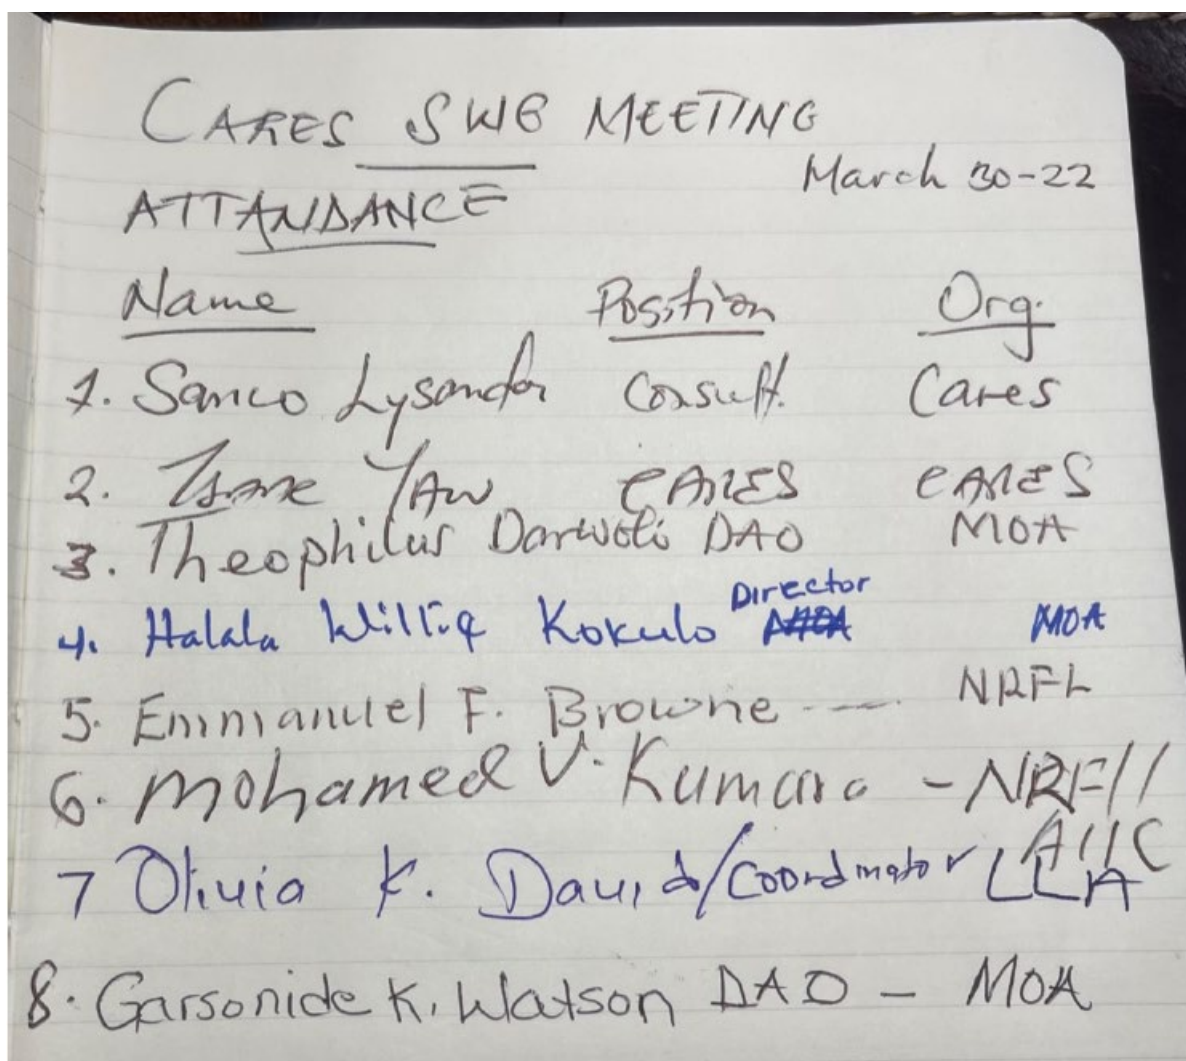 CARES SWG MEETING
March 30-22
ATTANDANCE
Name Position Org.
1. Sanco Lysander Consult. Cares
2. YAW CARES CARES
3. Theophilus DAO MOA
4. Halala Willie Kokulo Director MOA
5. Emmanuel F. Browne --- NRFL
6. Mohamed V. Kumara - NRF//
AIIC
7 Olivia K. David/Coordinator LLA
8. Garsonide K. Watson DAO - MOA